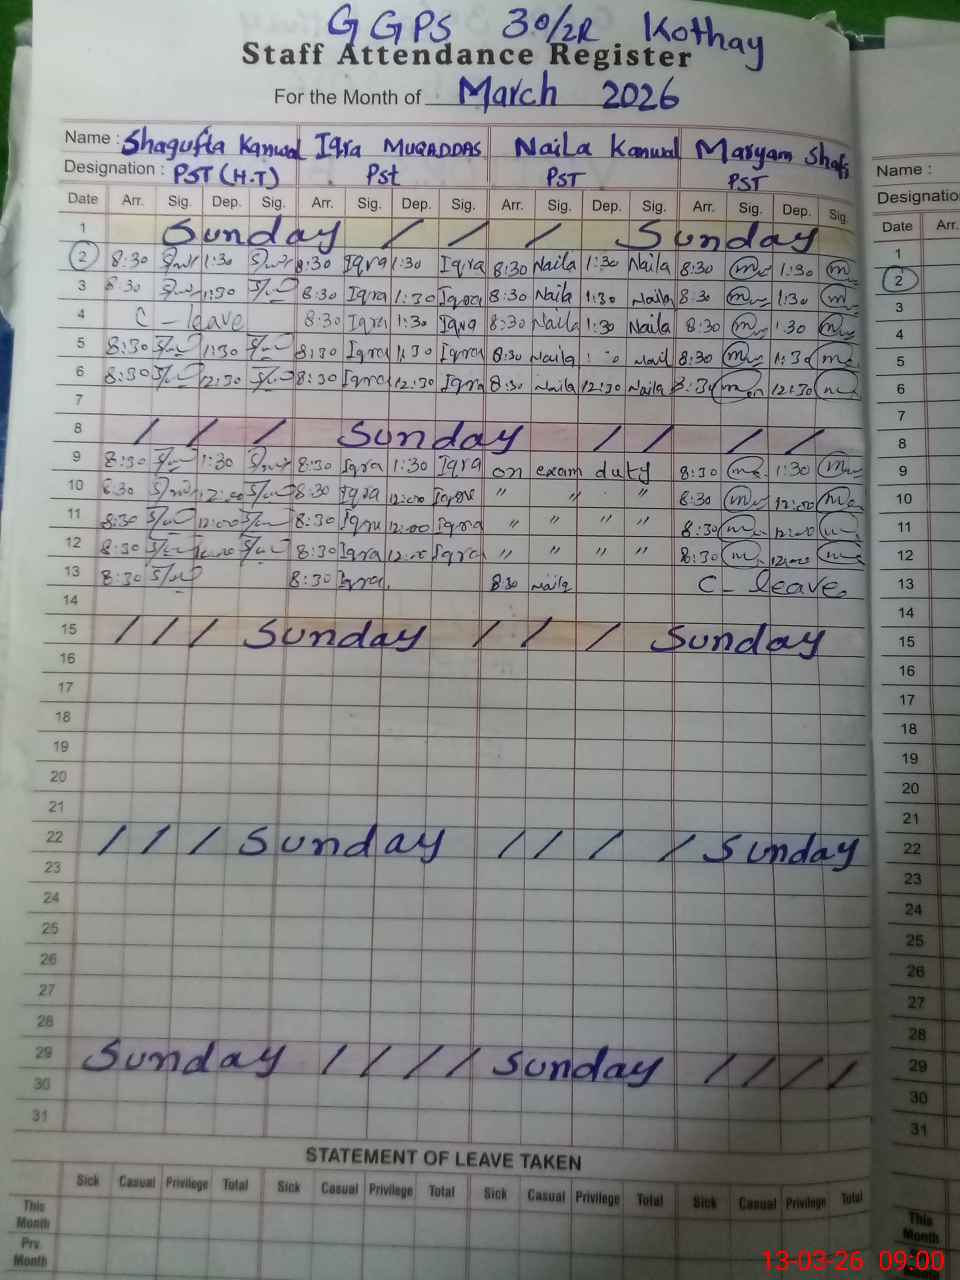 GGPS 30/2R Kothay
Staff Attendance Register
For the Month of March 2026
Name : Shagufta Kanwal Iqra MUQADDAS Naila Kanwal Maryam Shafi
Designation : PST (H.T) Pst PST PST
Date Arr. Sig. Dep. Sig. Arr. Sig. Dep. Sig. Arr. Sig. Dep. Sig. Arr. Sig. Dep. Sig.
1 Sunday / / / Sunday
2 8:30 1:30 8:30 Iqra 1:30 Iqra 8:30 Naila 1:30 Naila 8:30 1:30
3 8:30 1:30 8:30 Iqra 1:30 Iqra 8:30 Naila 1:30 Naila 8:30 1:30
4 C - leave 8:30 Iqra 1:30 Iqra 8:30 Naila 1:30 Naila 8:30 1:30
5 8:30 1:30 8:30 Iqra 1:30 Iqra 8:30 Naila Nail 8:30 1:30
6 8:30 12:30 8:30 Iqra 12:30 Iqra 8:30 Naila 12:30 Naila 8:30 12:30
7
8 / / / Sunday / / / /
9 8:30 1:30 8:30 Iqra 1:30 Iqra on exam duty 8:30 1:30
10 8:30 12:00 8:30 Iqra 12:00 Iqra " " " 8:30 12:00
11 8:30 12:00 8:30 Iqra 12:00 Iqra " " " " 8:30 12:00
12 8:30 8:30 Iqra 12:00 Iqra " " " " 8:30 12:00
13 8:30 8:30 Iqra 8:30 Naila C - leave
14
15 / / / Sunday / / / Sunday
16
17
18
19
20
21
22 / / / Sunday / / / / Sunday
23
24
25
26
27
28
29 Sunday / / / / Sunday / / / /
30
31
STATEMENT OF LEAVE TAKEN
Sick Casual Privilege Total Sick Casual Privilege Total Sick Casual Privilege Total Sick Casual Privilege Total
This Month
Prv. Month
Name :
Designatio
Date Arr.
1
2
3
4
5
6
7
8
9
10
11
12
13
14
15
16
17
18
19
20
21
22
23
24
25
26
27
28
29
30
31
This Month
13-03-26 09:00